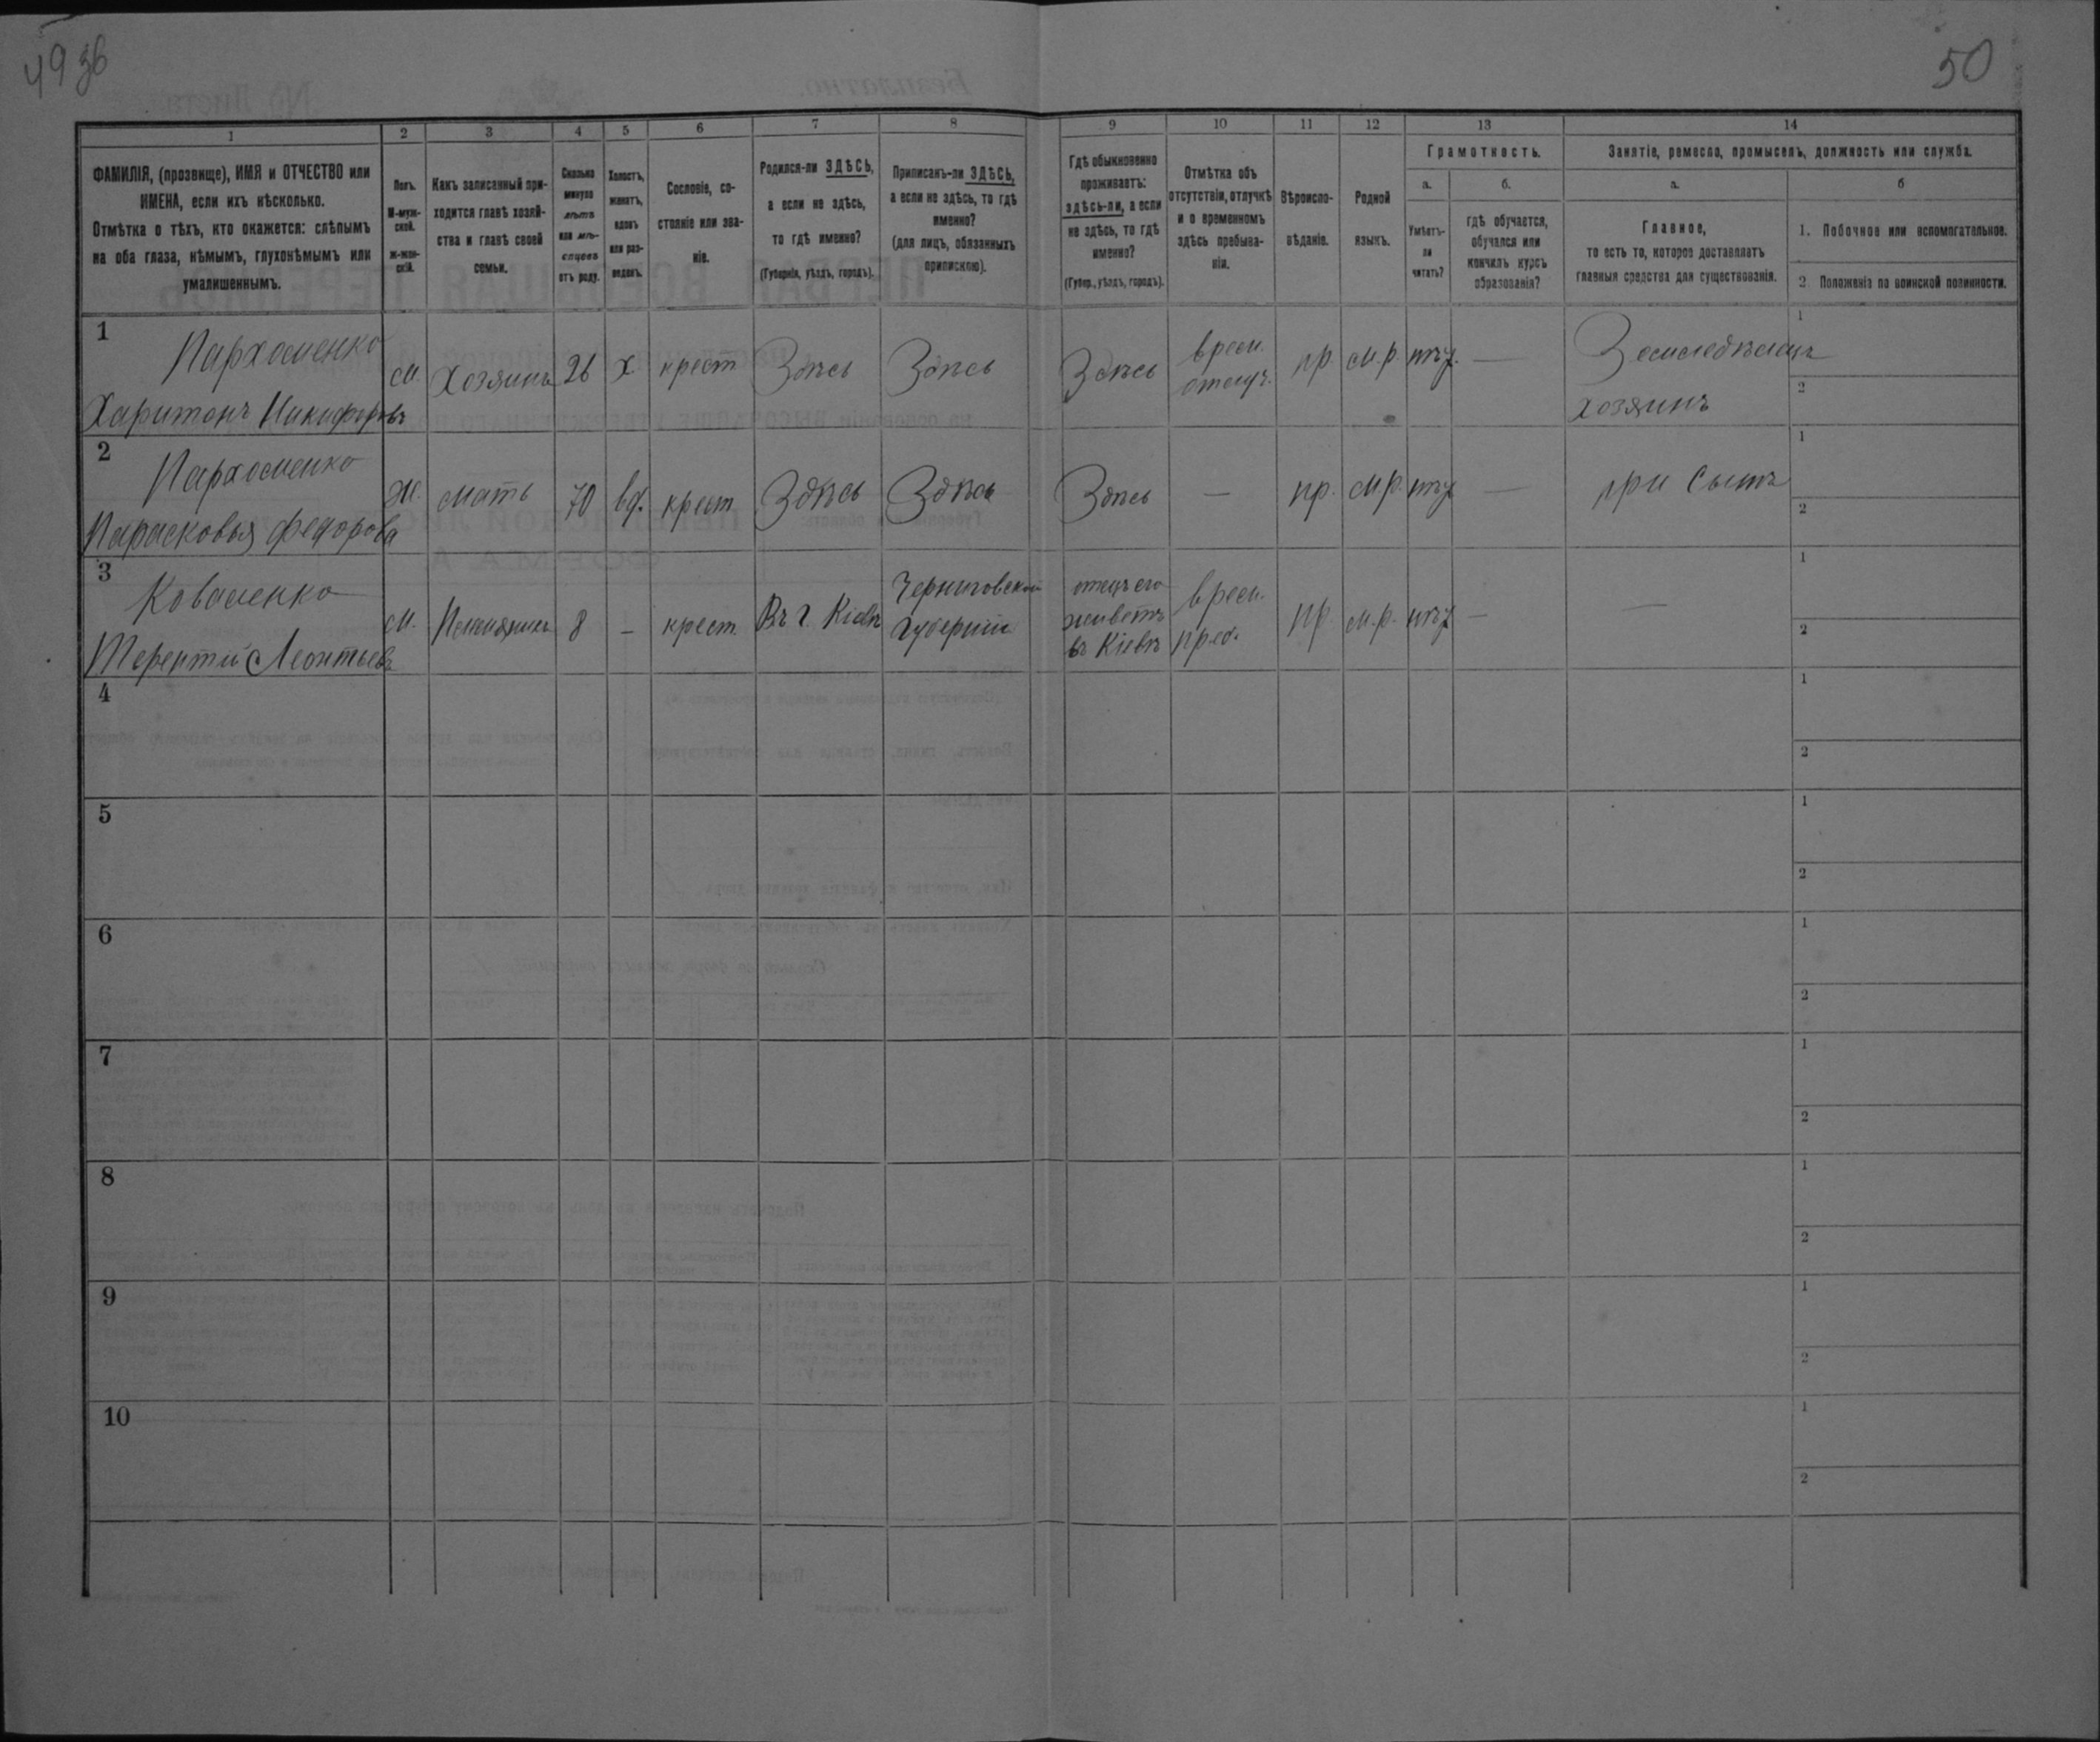 49 зв
50
1
2
3
4
5
6
7
8
9
10
11
12
13
14
ФАМИЛІЯ, (прозвище), ИМЯ и ОТЧЕСТВО или
ИМЕНА, если ихъ нѣсколько.
Отмѣтка о тѣхъ, кто окажется: слѣпымъ
на оба глаза, нѣмымъ, глухонѣмымъ или
умалишеннымъ.
Полъ.
М-муж-
ской.
Ж-жен-
скій.
Какъ записанный при-
ходится главѣ хозяй-
ства и главѣ своей
семьи.
Сколько
минуло
лѣтъ
или мѣ-
сяцевъ
отъ роду.
Холостъ,
женатъ,
вдовъ
или раз-
веденъ.
Сословіе, со-
стояніе или зва-
ніе.
Родился-ли ЗДѢСЬ,
а если не здѣсь,
то гдѣ именно?
(Губернія, уѣздъ, городъ).
Приписанъ-ли ЗДѢСЬ,
а если не здѣсь, то гдѣ
именно?
(для лицъ, обязанныхъ
припискою).
Гдѣ обыкновенно
проживаетъ:
здѣсь-ли, а если
не здѣсь, то гдѣ
именно?
(Губер., уѣздъ, городъ).
Отмѣтка объ
отсутствіи, отлучкѣ
и о временномъ
здѣсь пребыва-
ніи.
Вѣроиспо-
вѣданіе.
Родной
языкъ.
Грамотность.
а.
Умѣетъ-
ли
читать?
б.
гдѣ обучается,
обучался или
кончилъ курсъ
образованія?
Занятіе, ремесло, промыселъ, должность или служба.
а.
Главное,
то есть то, которое доставляетъ
главныя средства для существованія.
б
1. Побочное или вспомогательное.
2 Положеніе по воинской повинности.
1
Пархоменко
Харитонъ Никифоровъ
м.
Хозяинъ
26
х
крест
Здѣсь
Здѣсь
Здѣсь
врем.
отлуч.
пр.
м.р.
нѣт
—
Земледѣлецъ
хозяинъ
1
2
2
Пархоменко
Парасковья Федорова
Ж.
мать
70
вд.
крест
Здѣсь
Здѣсь
Здѣсь
—
пр.
м.р.
нѣт
—
при Сынѣ
1
2
3
Коваленко
Терентій Леонтьевъ
м.
8
–
крест.
Въ г. Кіевѣ
Черниговской
губерніи
отецъ его
живетъ
въ Кіевѣ
врем.
преб.
пр.
м.р.
нѣт
—
—
1
2
4
1
2
5
1
2
6
1
2
7
1
2
8
1
2
9
1
2
10
1
2